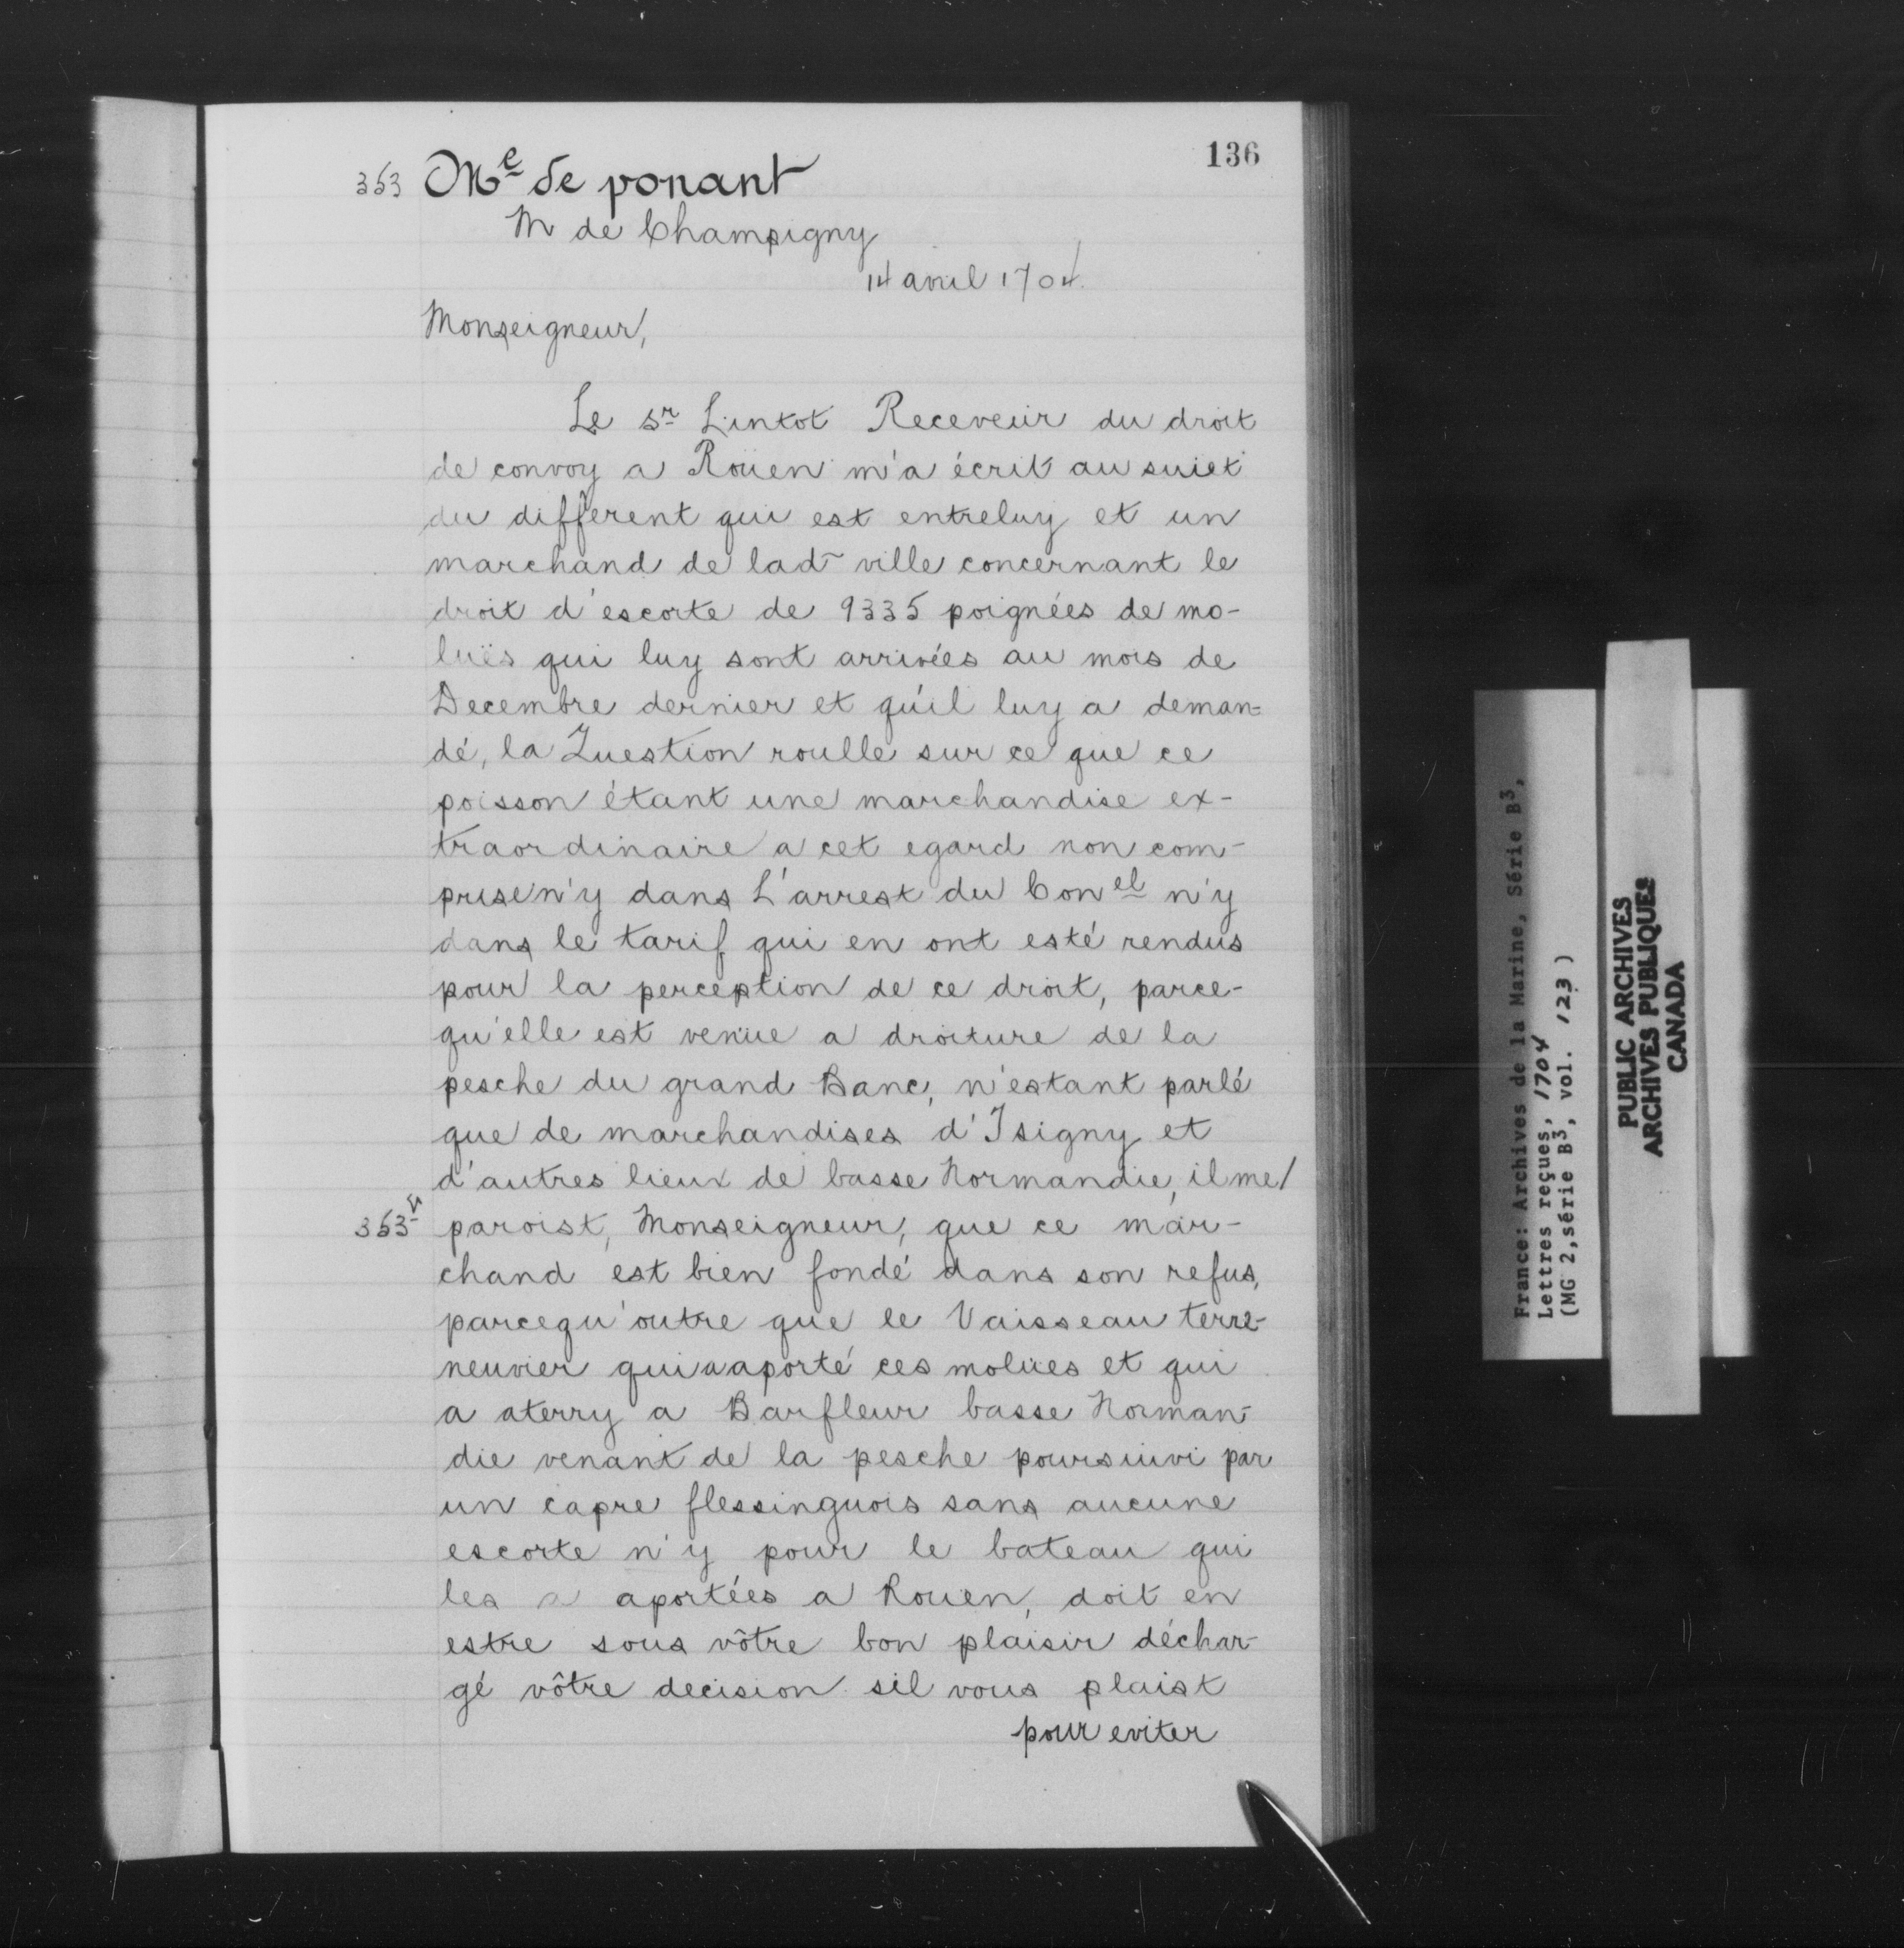 136
353 Me de ponant
M de Champigny
14 avril 1704.
Monseigneur,
Le Sr Lintot Receveur du droit
de convoy a Roüen m'a écrit au suiet
du different qui est entreluy et un
marchand de lad ville concernant le
droit d'escorte de 9335 poignées de mo-
luës qui luy sont arrivées au mois de
Decembre dernier et qu'il luy a deman=
dé, la Question roulle sur ce que ce
poisson étant une marchandise ex-
traordinaire a cet egard non com-
prise n'y dans L'arrest du Conel n'y
dans le tarif qui en ont esté rendus
pour la perception de ce droit, parce-
qu'elle est venüe a droiture de la
pesche du grand Banc, n'estant parlé
que de marchandises d'Isigny et
d'autres lieux de basse Normandie, il me/
353v paroist, Monseigneur, que ce mar-
chand est bien fondé dans son refus,
parcequ'outre que le Vaisseau terre-
neuvier qui a aporté ces molües et qui
a aterry a Barfleur basse Norman-
die venant de la pesche poursuivi par
un capre flessinguois sans aucune
escorte n'y pour le bateau qui
les a aportées a Rouen, doit en
estre sous vôtre bon plaisir déchar-
gé vôtre decision sil vous plaist
pour eviter
France: Archives de la Marine, Série B3,
Lettres reçues, 1704
(MG 2,série B3, vol. 123)
PUBLIC ARCHIVES
ARCHIVES PUBLIQUES
CANADA